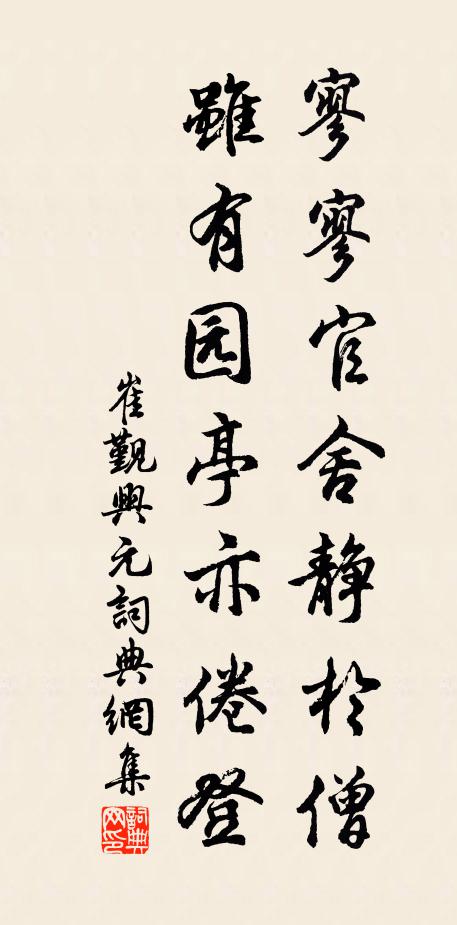 寥寥官舍静於僧
雖有园亭亦倦登
崔覲興元詞典網集
詞典網印